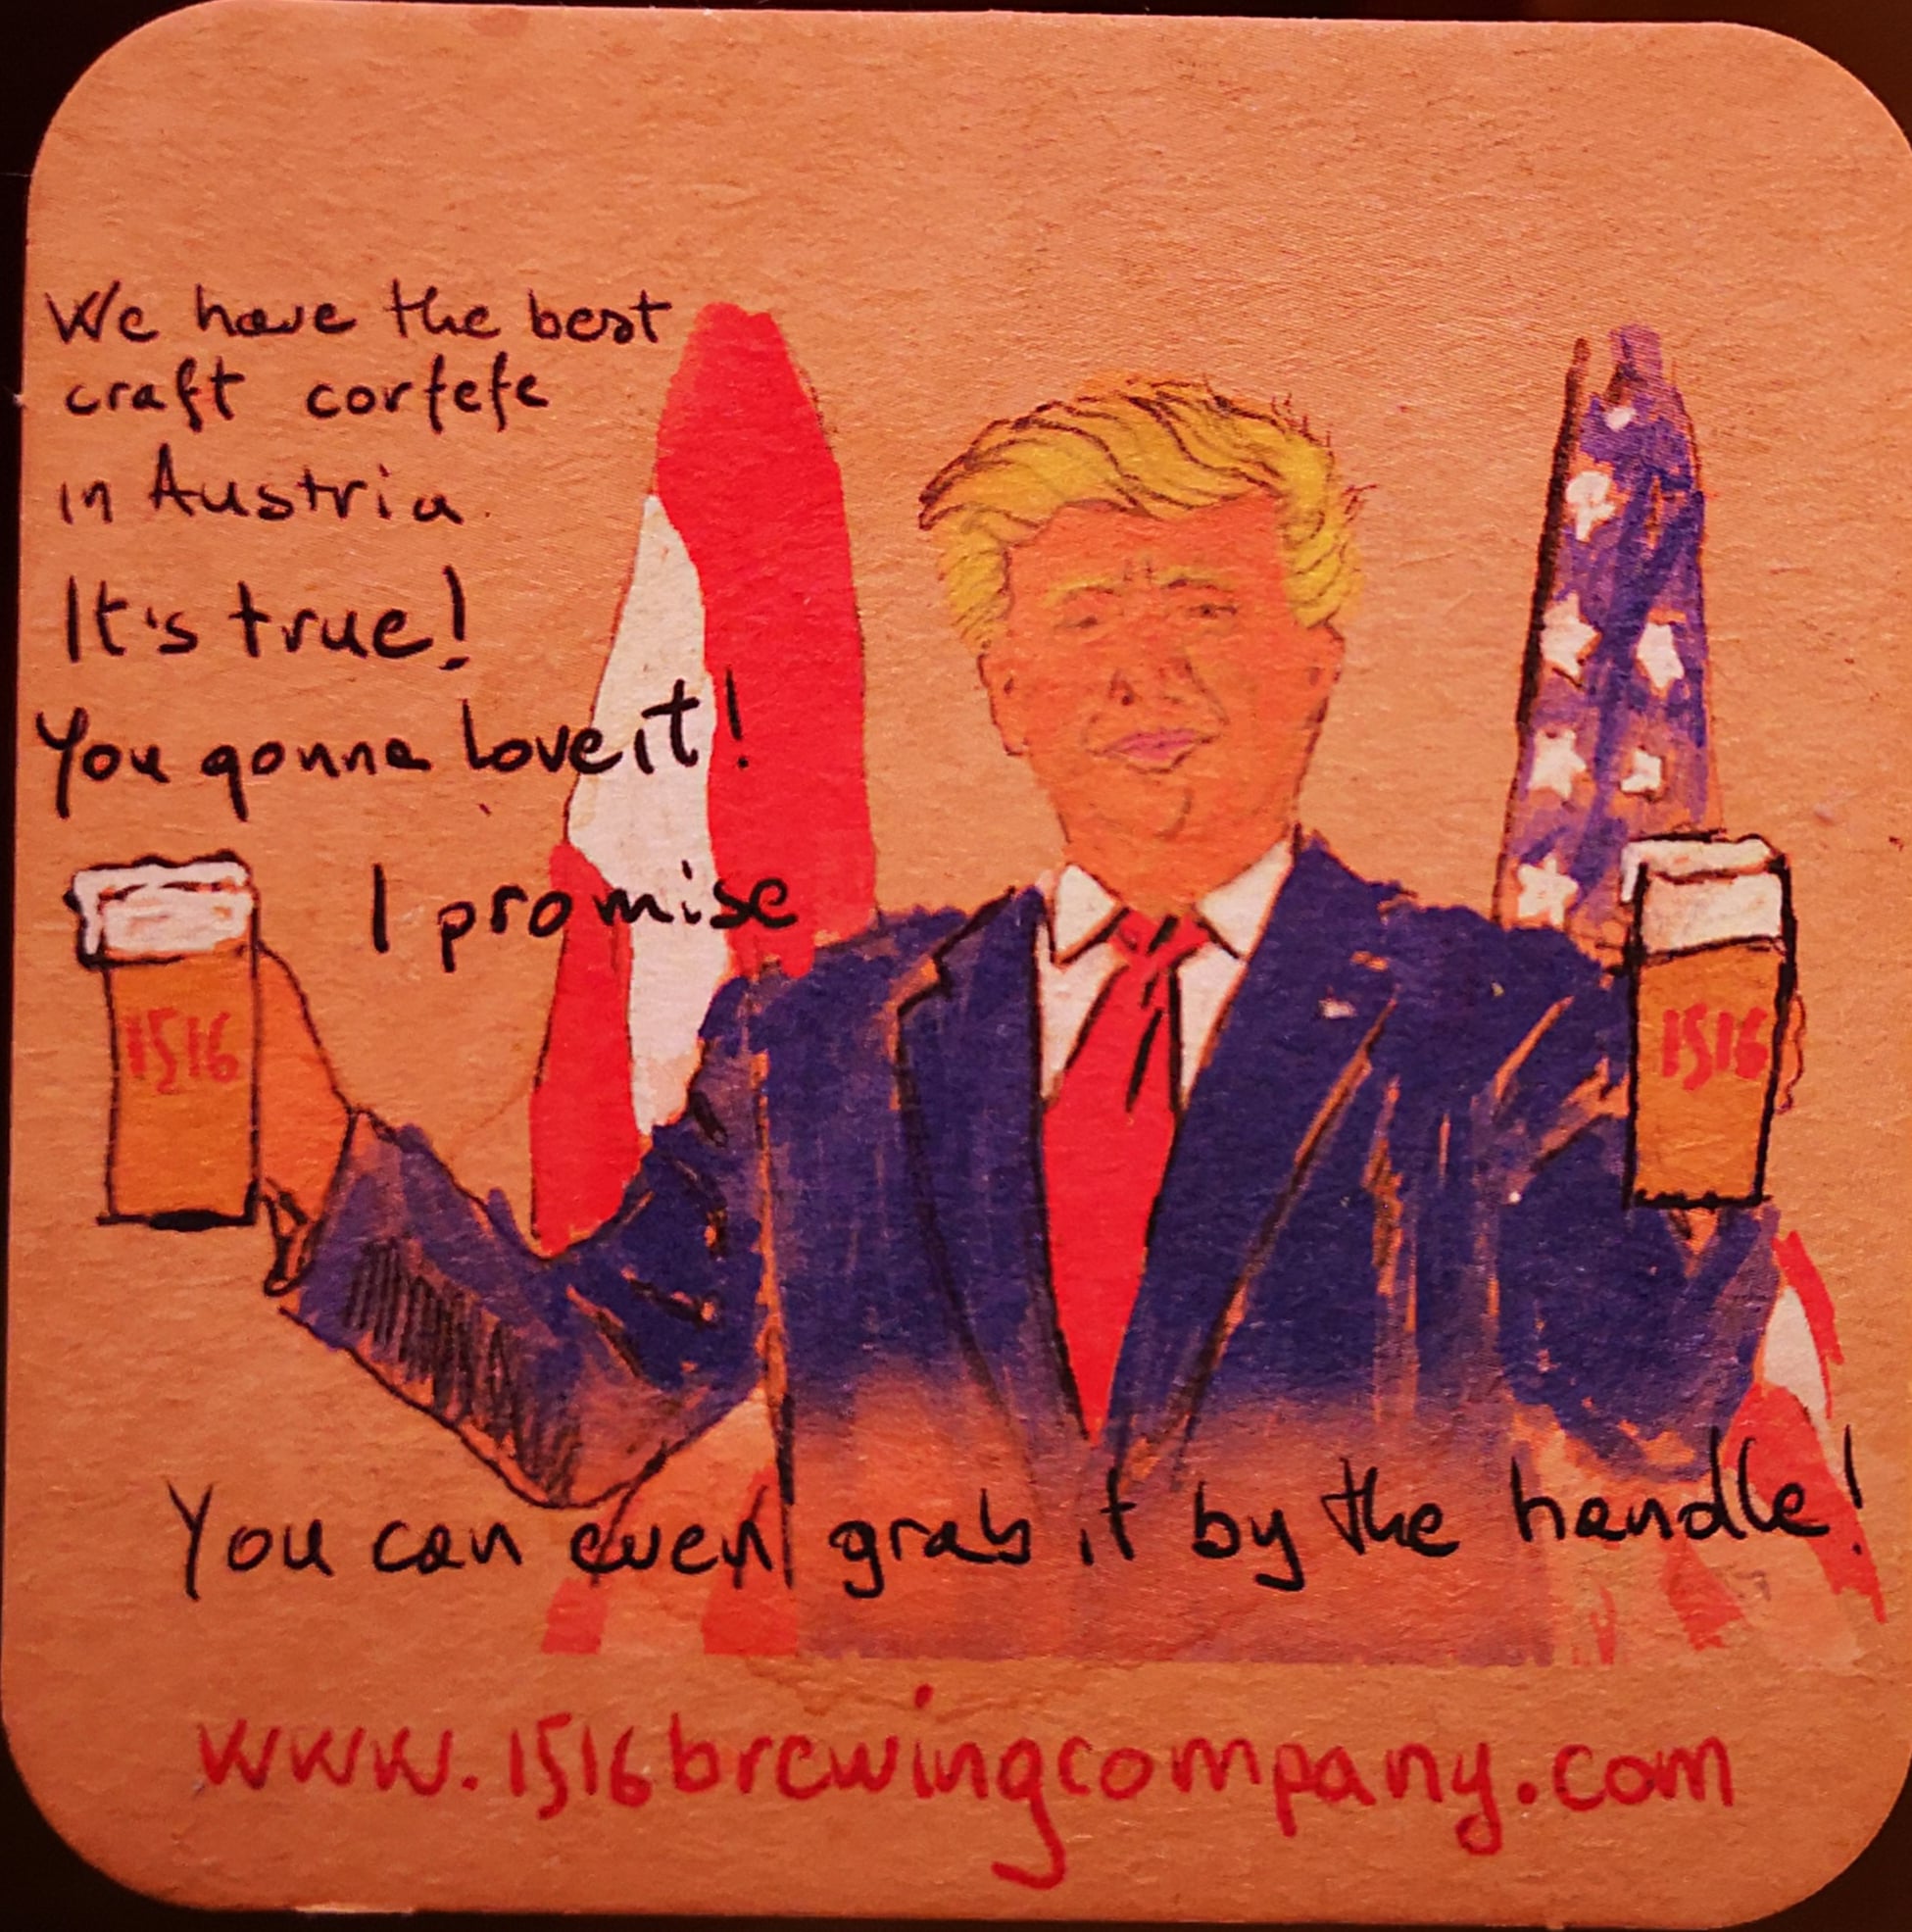 We have the best
craft corfefe
in Austria.
It's true!
You gonna love it!
I promise
1516
1516
You can even grab it by the handle!
www.1516brewingcompany.com